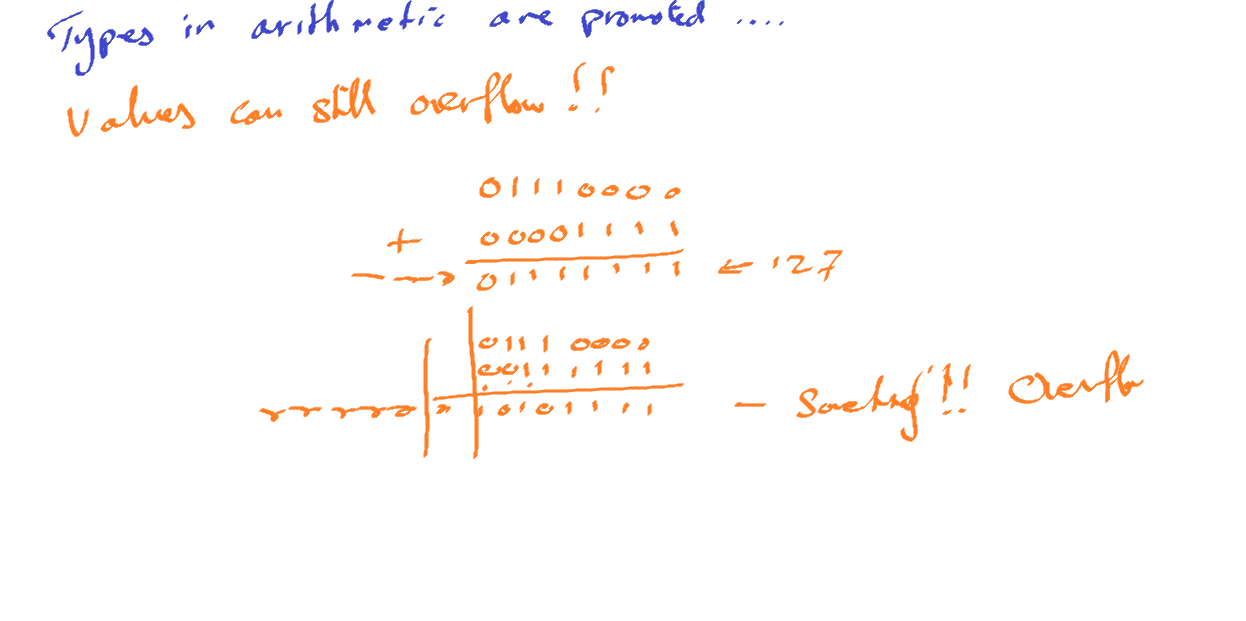 Types in arithmetic are promoted ....
Values can still overflow !!
01110000
+ 00001111
01111111 ← 127
01110000
00111111
10101111 - Something !! Overflo